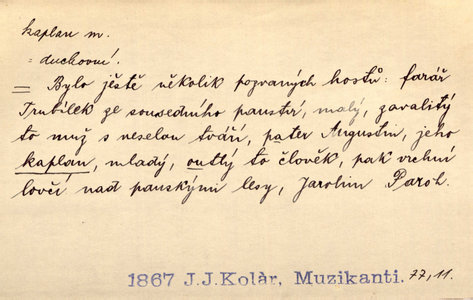 kaplan m.
= duchovní.
= Bylo ještě několik pozvaných hostů: farář
Trubílek ze sousedního panství, malý, zavalitý
to muž s veselou tváří, pater Augustin, jeho
kaplan, mladý, outlý to člověk, pak vrchní
lovčí nad panskými lesy, Jarolim Paroh.
1867 J.J.Kolàr, Muzikanti. 77,11.